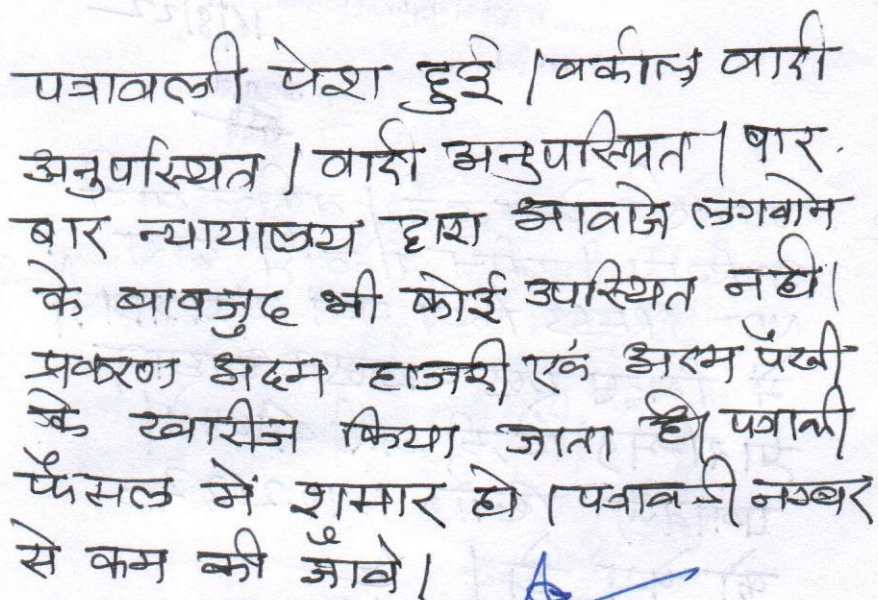 पत्रावली पेश हुई । वकील वादी
अनुपस्थित । वादी अनुपस्थित । बार
बार न्यायालय द्वारा आवाजे लगवाने
के बावजुद भी कोई उपस्थित नही।
प्रकरण अदम हाजरी एवं अदम पैरवी
के खारीज किया जाता है। पत्रावली
फैसल में शुमार हो । पत्रावली नम्बर
से कम की जाँवे।